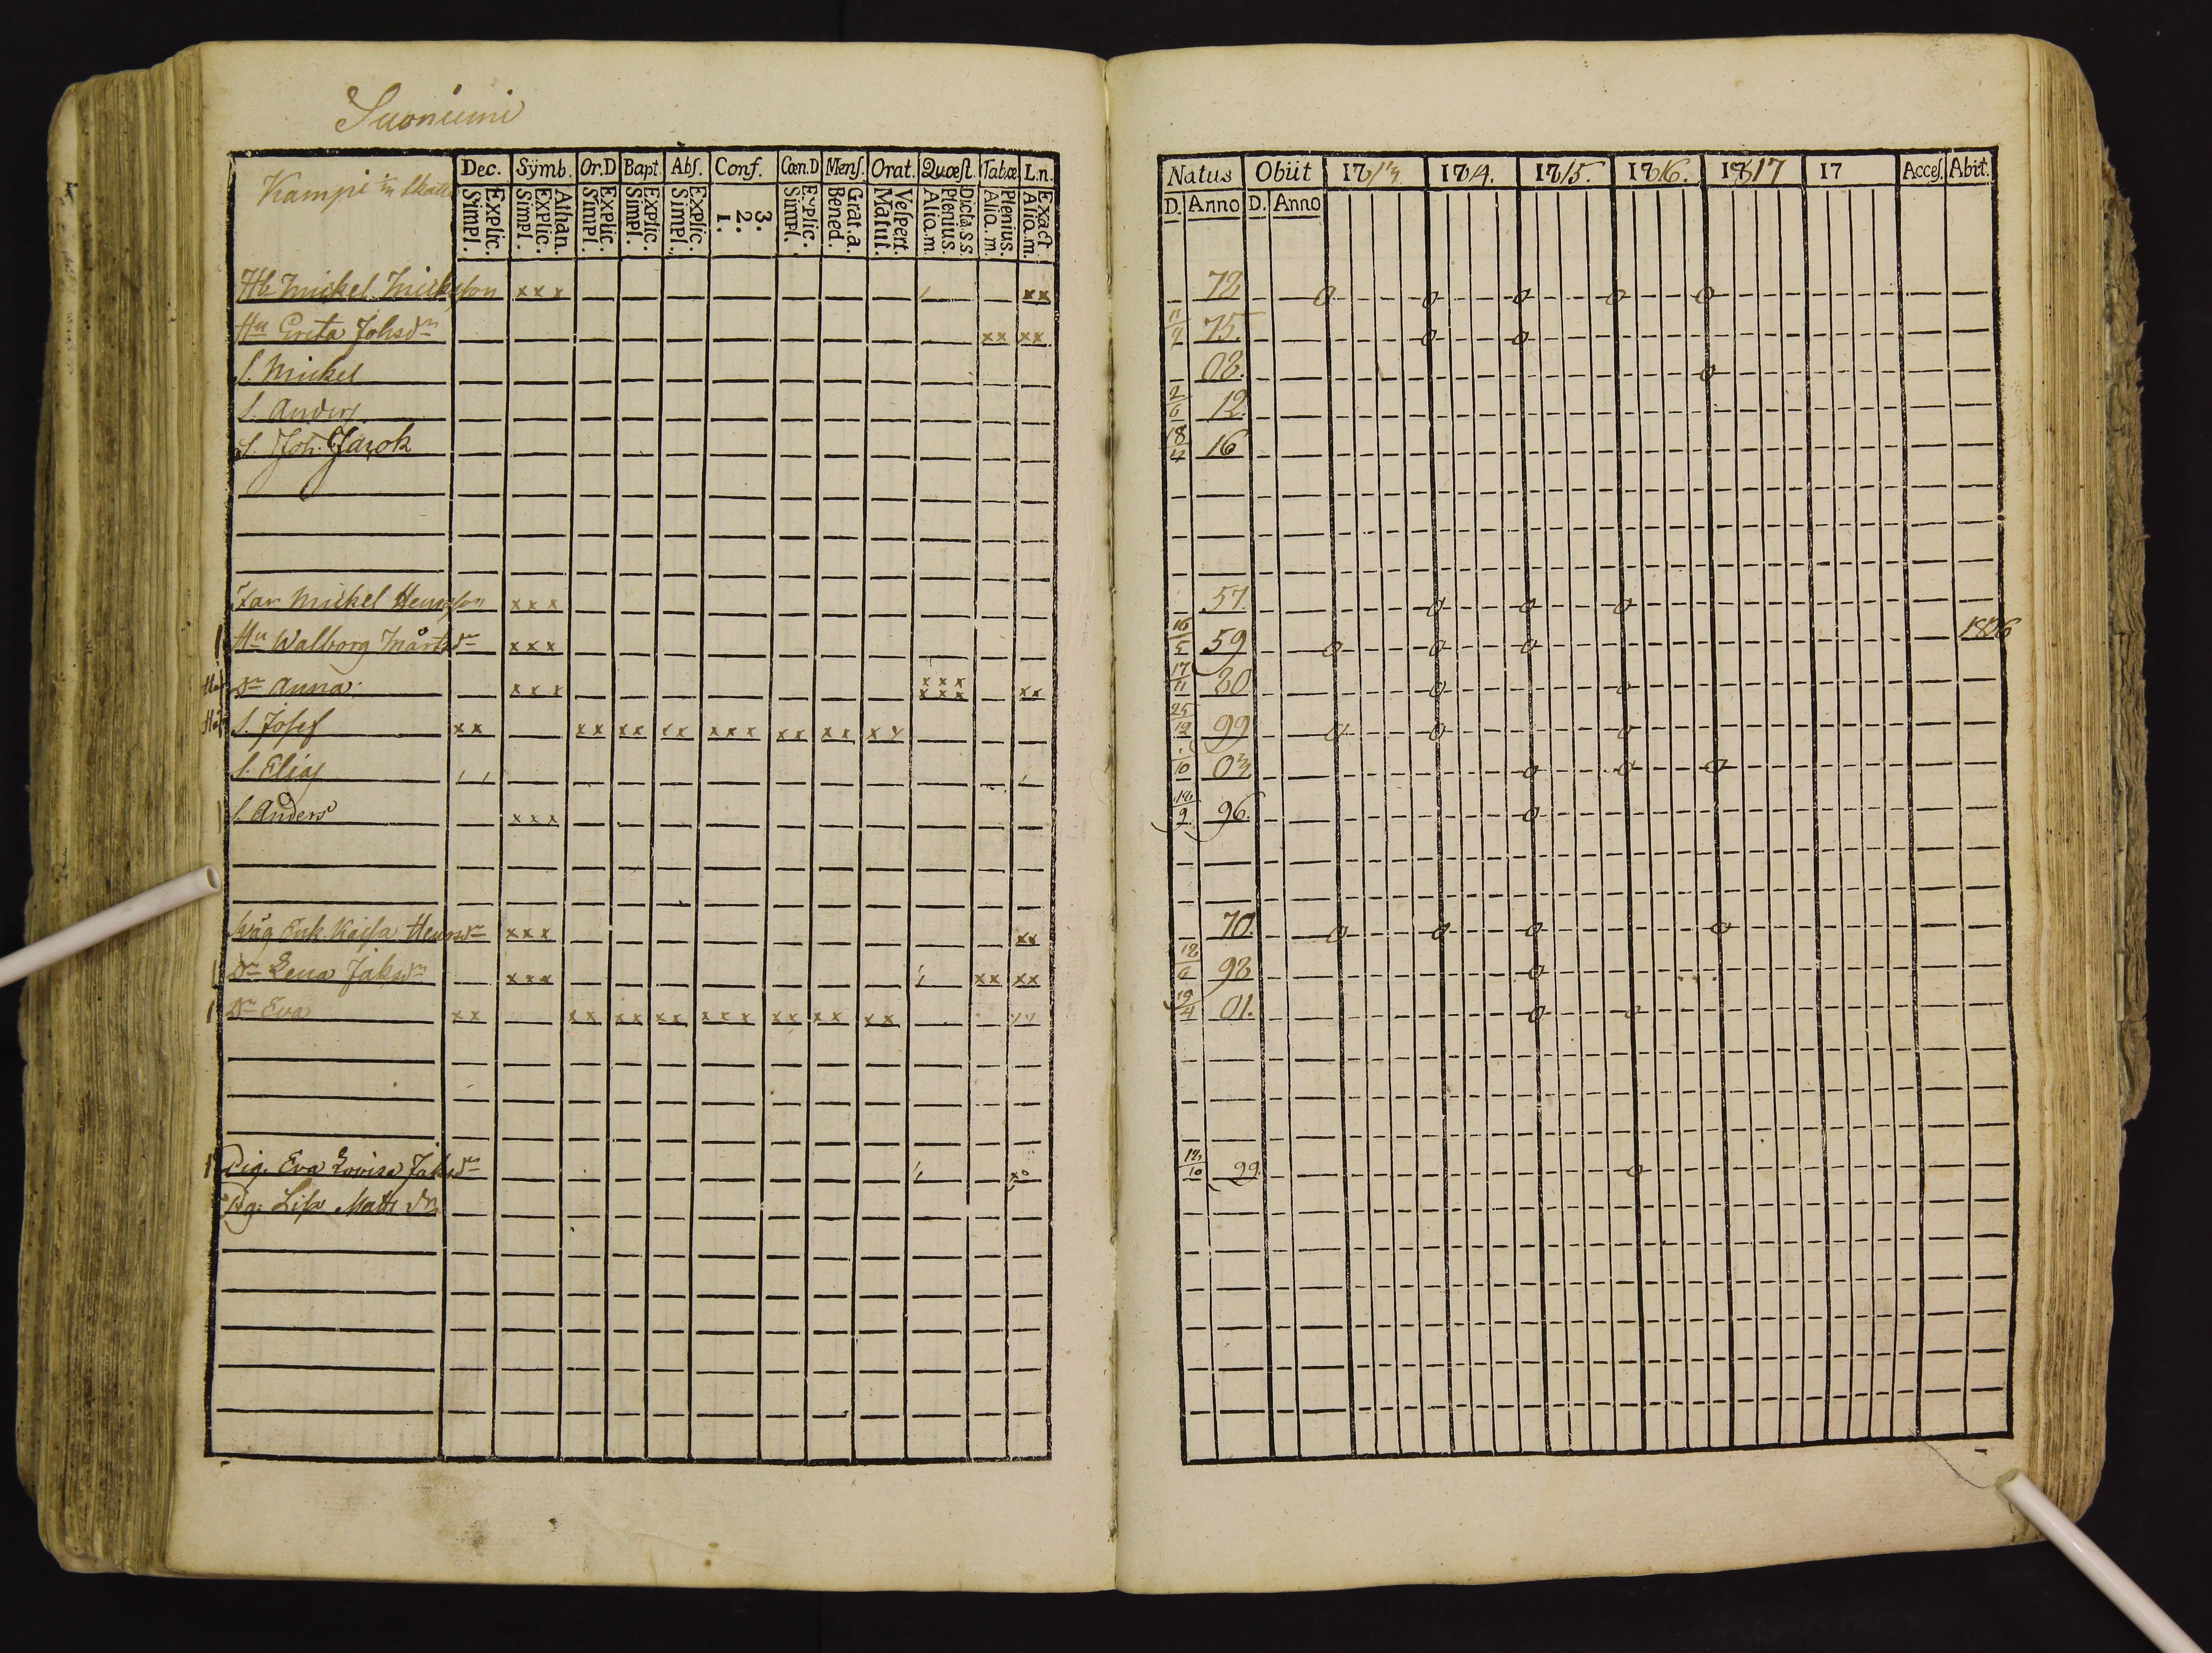 Suoniemi
Kampi
Dec. Symb. Or.D Bapt. Abs. Conf. Cœn.D Mens. Orat. Quæst. Tabæ L.n.
Explic. Simpl. Athan. Explic. Simpl. Explic. Simpl. Explic. Simpl. Explic. Simpl. 3. 2. 1. Explic. Simpl. Grat.a. Bened. Vespert. Matut. Dicta.s.s. Plenius. Alio.m. Plenius. Alio.m. Exact Alio.m.
Hb Mickel Mickelson xxx xx
Hu Greta Johsdr xx xx
S. Mickel
S. Anders
S. Joh: Jacok
Far Mickel Henrsson xxx
Hu Walborg Mårtsdr xxx
Dr Anna. xxx xxx xxx xx
S. Josef xx xx xx xx xxx xx xx xx
S. Elias
S. Anders xxx
Enk. Kajsa Henrsdr xxx xx
Dr Lena Jaksdr xxx xx xx
Dr Eva xx xx xx xx xxx xx xx xx
Pig. Eva Lovisa Jaksdr
Pig. Lisa Matts dr
Natus Obiit 1813. 1814. 1815. 1816. 1817 17 Acces. Abiit.
D. Anno D. Anno
72 o o o o o
75. o o
02. o
2/6 12.
18/4 16
57. o o o
16/5 59 o o o 1816
17/11 80 o o
25/12 99 o o o
10 03 o o o
9 96. o
70. o o o o
98 o
19/4 01. o o
10 99. o